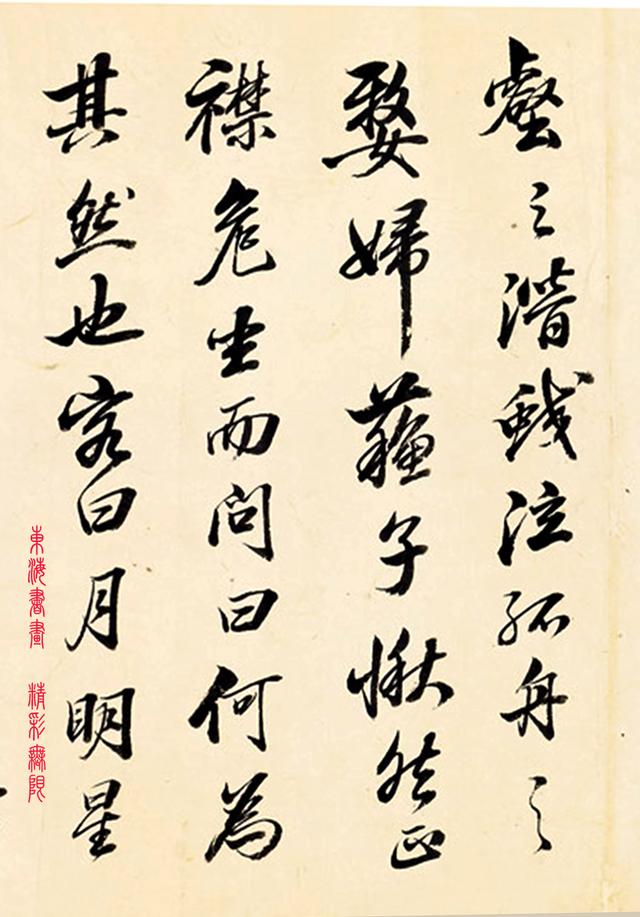 壑之潛蛟泣孤舟之
婺婦蘇子愀然正
襟危坐而問曰何為
其然也客曰月明星
東海書畫 精彩無限